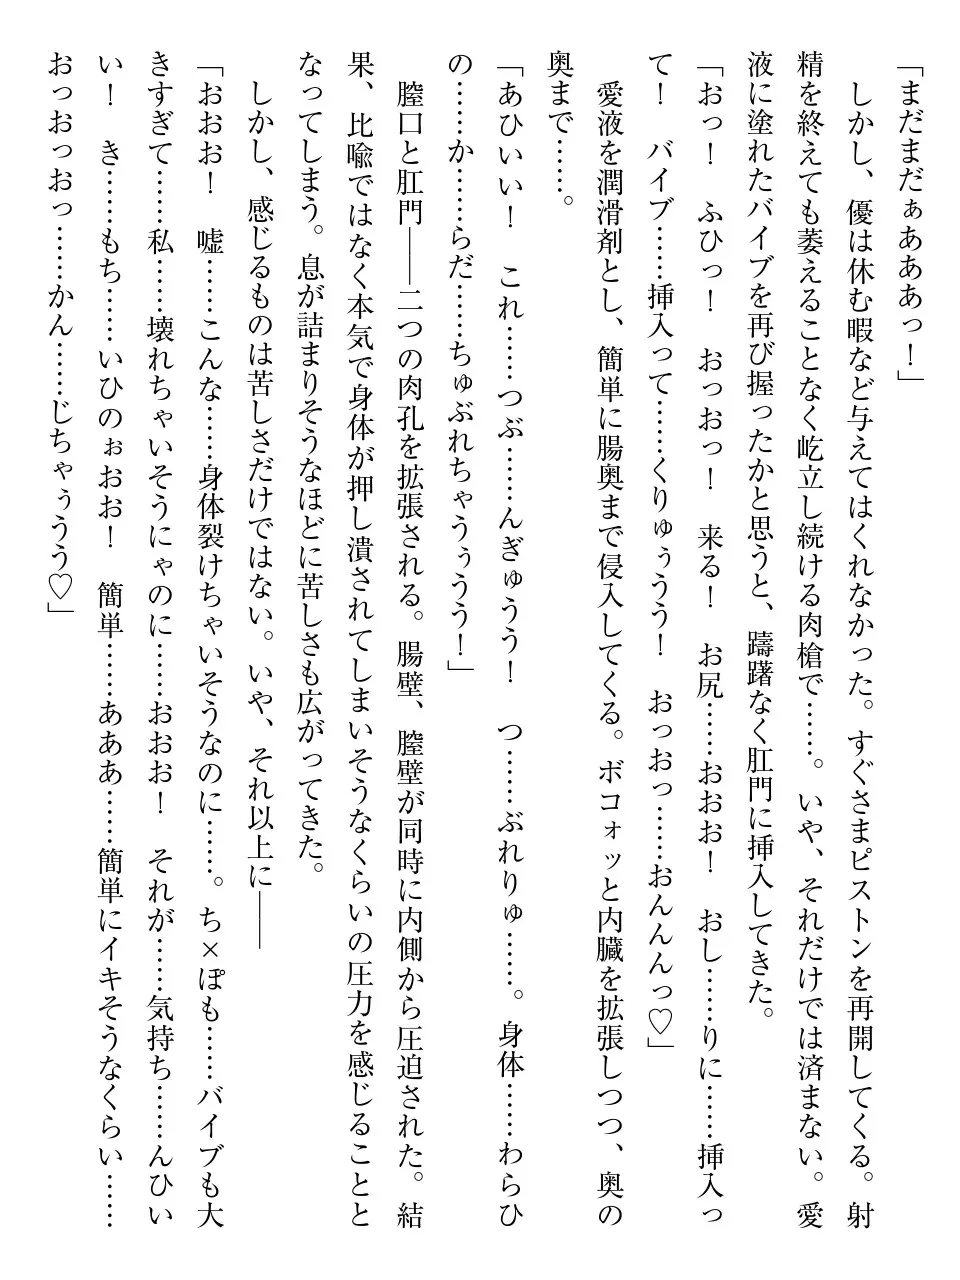 「まだまだぁあああっ！」
　しかし、優は休む暇など与えてはくれなかった。すぐさまピストンを再開してくる。射
精を終えても萎えることなく屹立し続ける肉槍で……。いや、それだけでは済まない。愛
液に塗れたバイブを再び握ったかと思うと、躊躇なく肛門に挿入してきた。
「おっ！　ふひっ！　おっおっ！　来る！　お尻……おおお！　おし……りに……挿入っ
て！　バイブ……挿入って……くりゅぅうう！　おっおっ……おんんんっ♡」
　愛液を潤滑剤とし、簡単に腸奥まで侵入してくる。ボコォッと内臓を拡張しつつ、奥の
奥まで……。
「あひいい！　これ……つぶ……んぎゅうう！　つ……ぶれりゅ……。身体……わらひ
の……か……らだ……ちゅぶれちゃうぅうう！」
　膣口と肛門――二つの肉孔を拡張される。腸壁、膣壁が同時に内側から圧迫された。結
果、比喩ではなく本気で身体が押し潰されてしまいそうなくらいの圧力を感じることと
なってしまう。息が詰まりそうなほどに苦しさも広がってきた。
　しかし、感じるものは苦しさだけではない。いや、それ以上に――
「おおお！　嘘……こんな……身体裂けちゃいそうなのに……。ち×ぽも……バイブも大
きすぎて……私……壊れちゃいそうにゃのに……おおお！　それが……気持ち……んひい
い！　き……もち……いひのぉおお！　簡単……あああ……簡単にイキそうなくらい……
おっおっおっ……かん……じちゃぅうう♡」